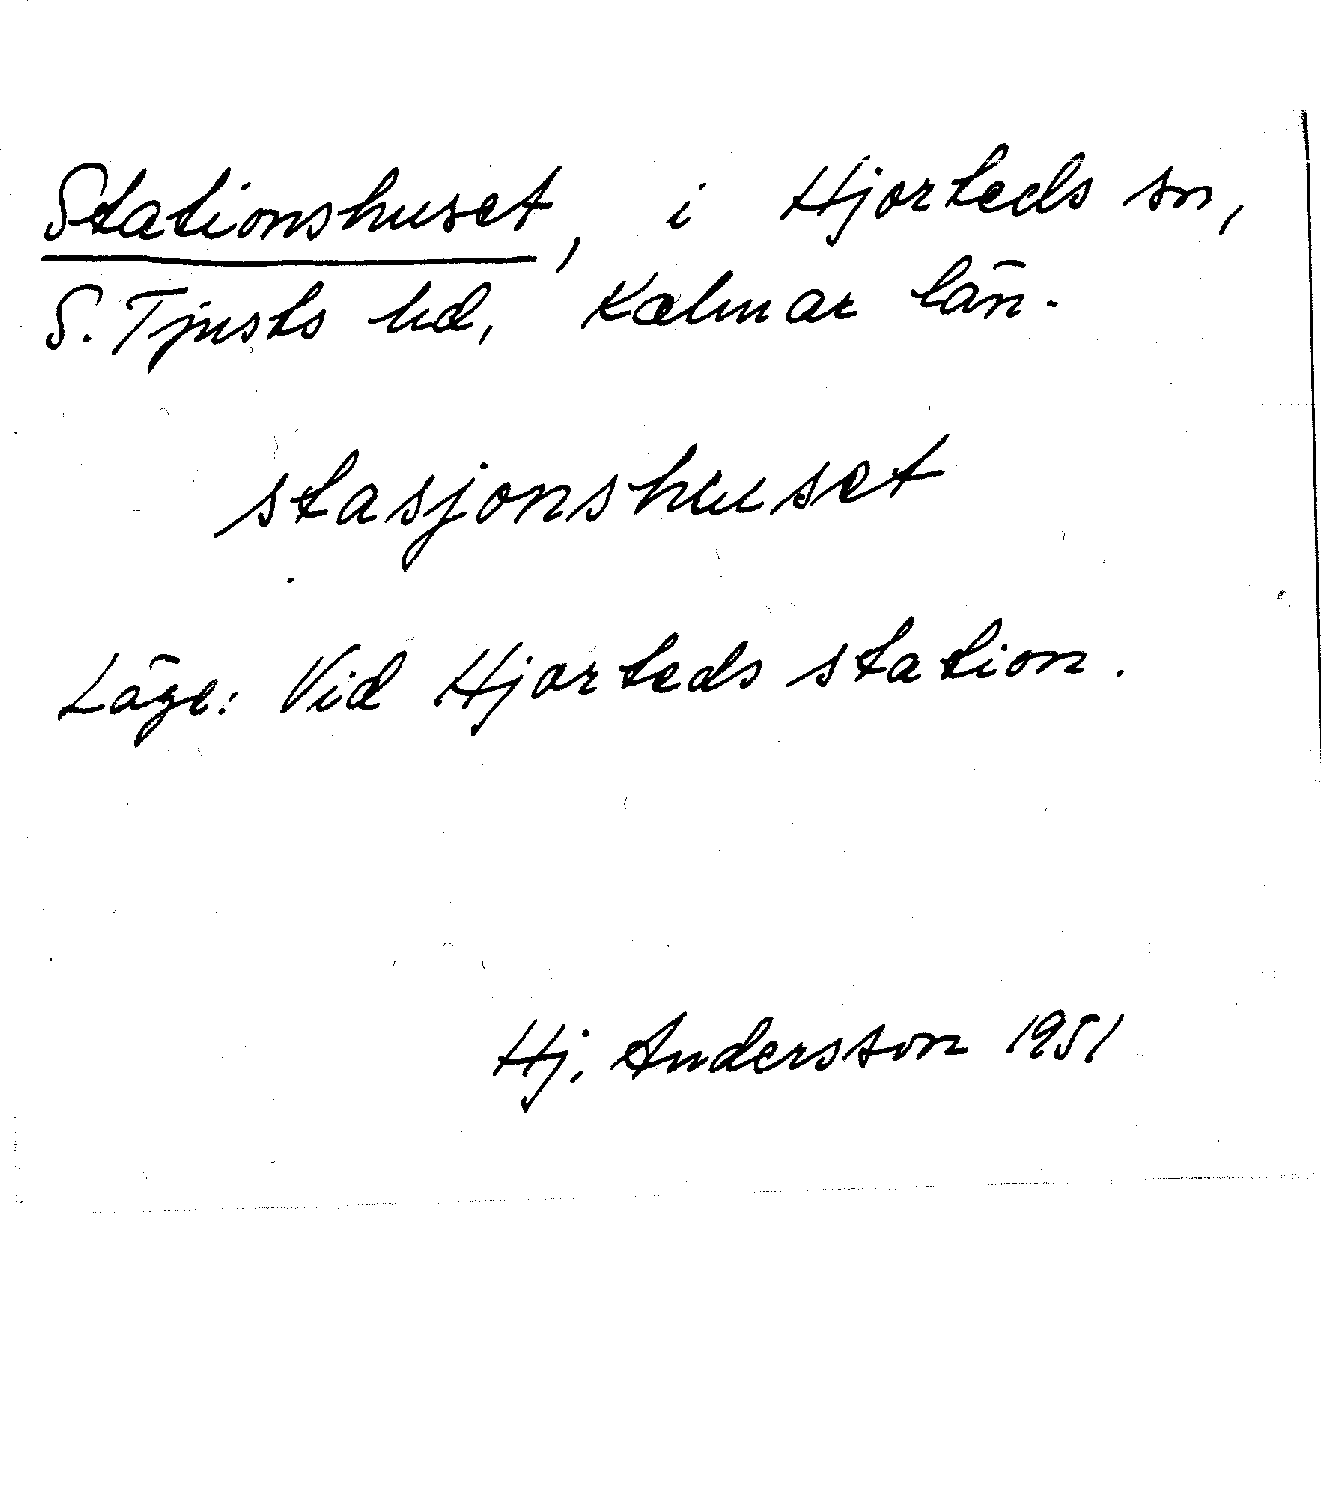 Stationshuset, i Hjorteds sn,
S. Tjusts hd, Kalmar län.
stasjonshuset
Läge: Vid Hjorteds station.
Hj. Andersson 1951